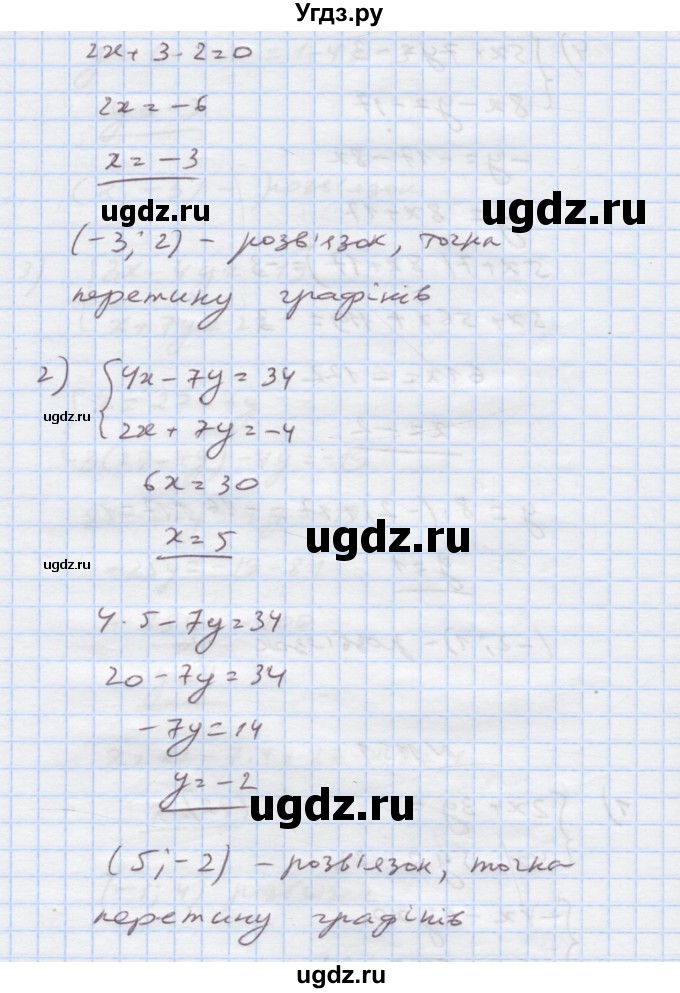 Угдз.ру
2x + 3 · 2 = 0
2x = -6
x = -3
ugdz.ru
ugdz.ru
(-3; 2) - розв'язок, точка
перетину графіків
2) { 4x - 7y = 34
ugdz.ru
2x + 7y = -4
6x = 30
x = 5
ugdz.ru
ugdz.ru
4 · 5 - 7y = 34
20 - 7y = 34
-7y = 14
y = -2
ugdz.ru
(5; -2) - розв'язок, точка
перетину графіків
ugdz.ru